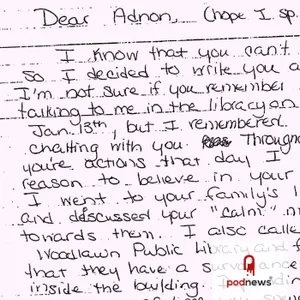 Dear Adnan, (hope I sp
I know that you can't
So I decided to write you a
I'm not sure if you remember
talking to me in the library on
Jan. 13th, but I remembered
chatting with you. Throughu
you're actions that day I
reason to believe in your
I went to your family's
and discussed your "calm" m
towards them. I also calle
Woodlawn Public Library and
that they have a surveillance
inside the building.
podnews